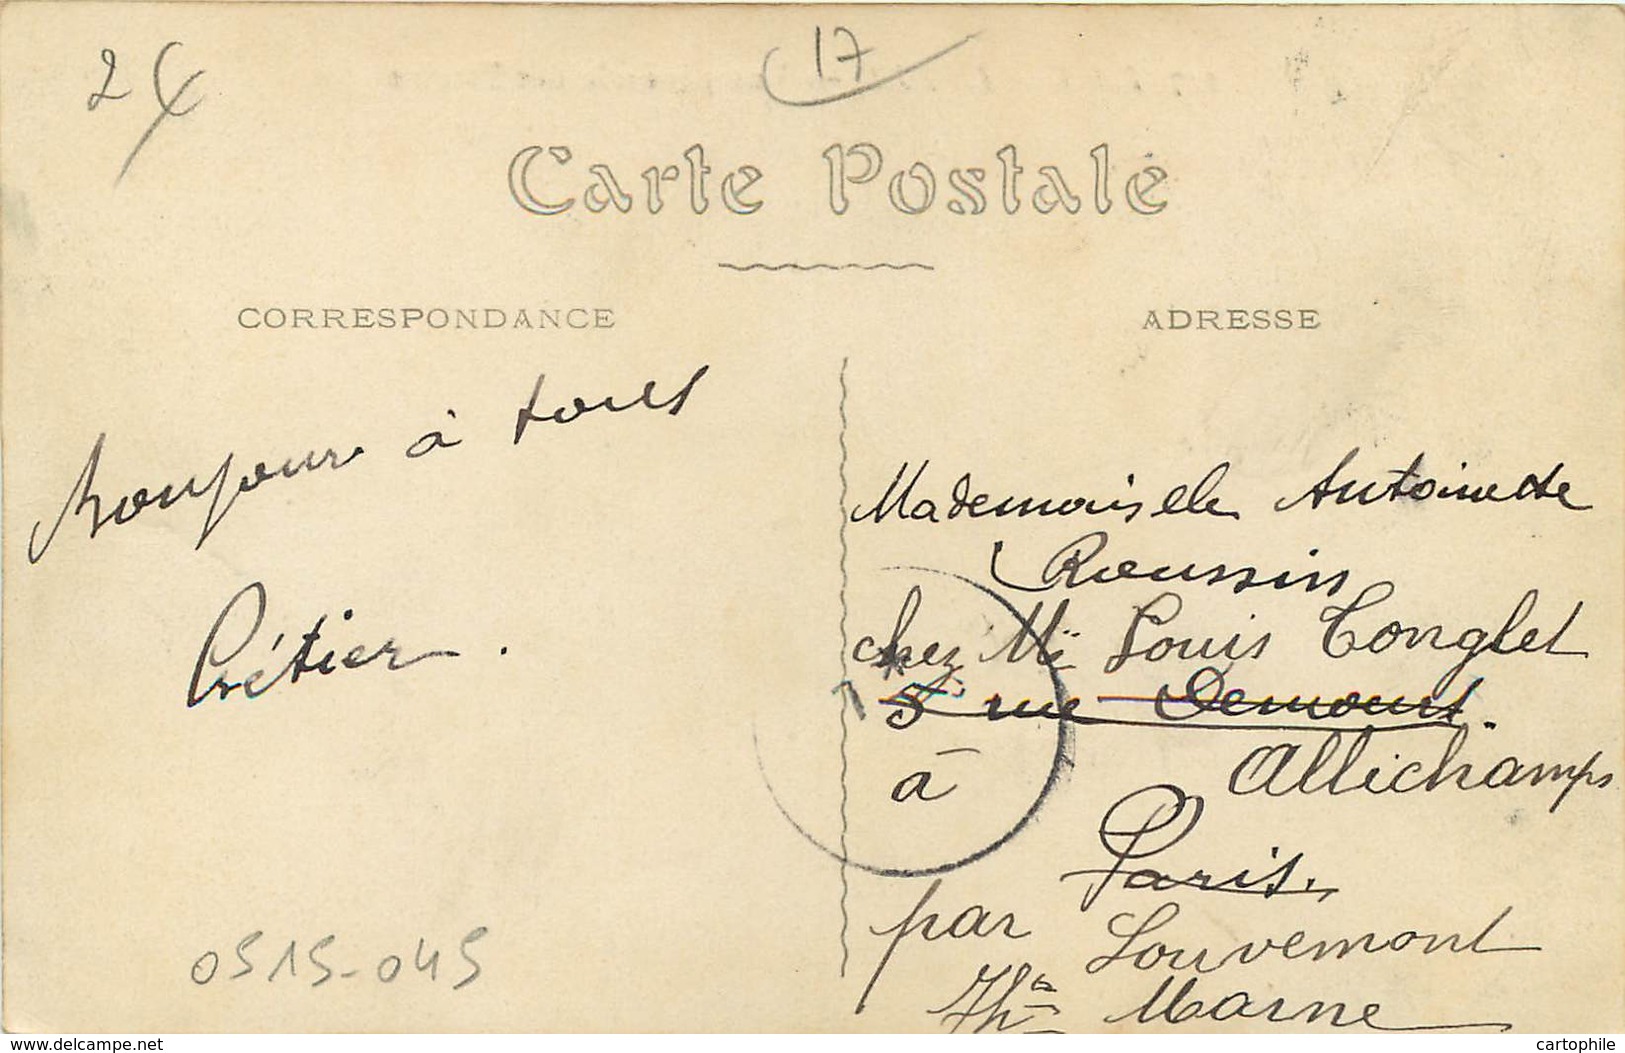 2€
17
Carte Postale
CORRESPONDANCE
ADRESSE
Bonjour à tous
Crétier.
Mademoiselle Antoinette
Roussin
chez Mr Louis Conglet
5 rue Demours.
à Allichamps
Paris.
par Louvemont
Hte Marne
0515-045
delcampe.net
cartophile